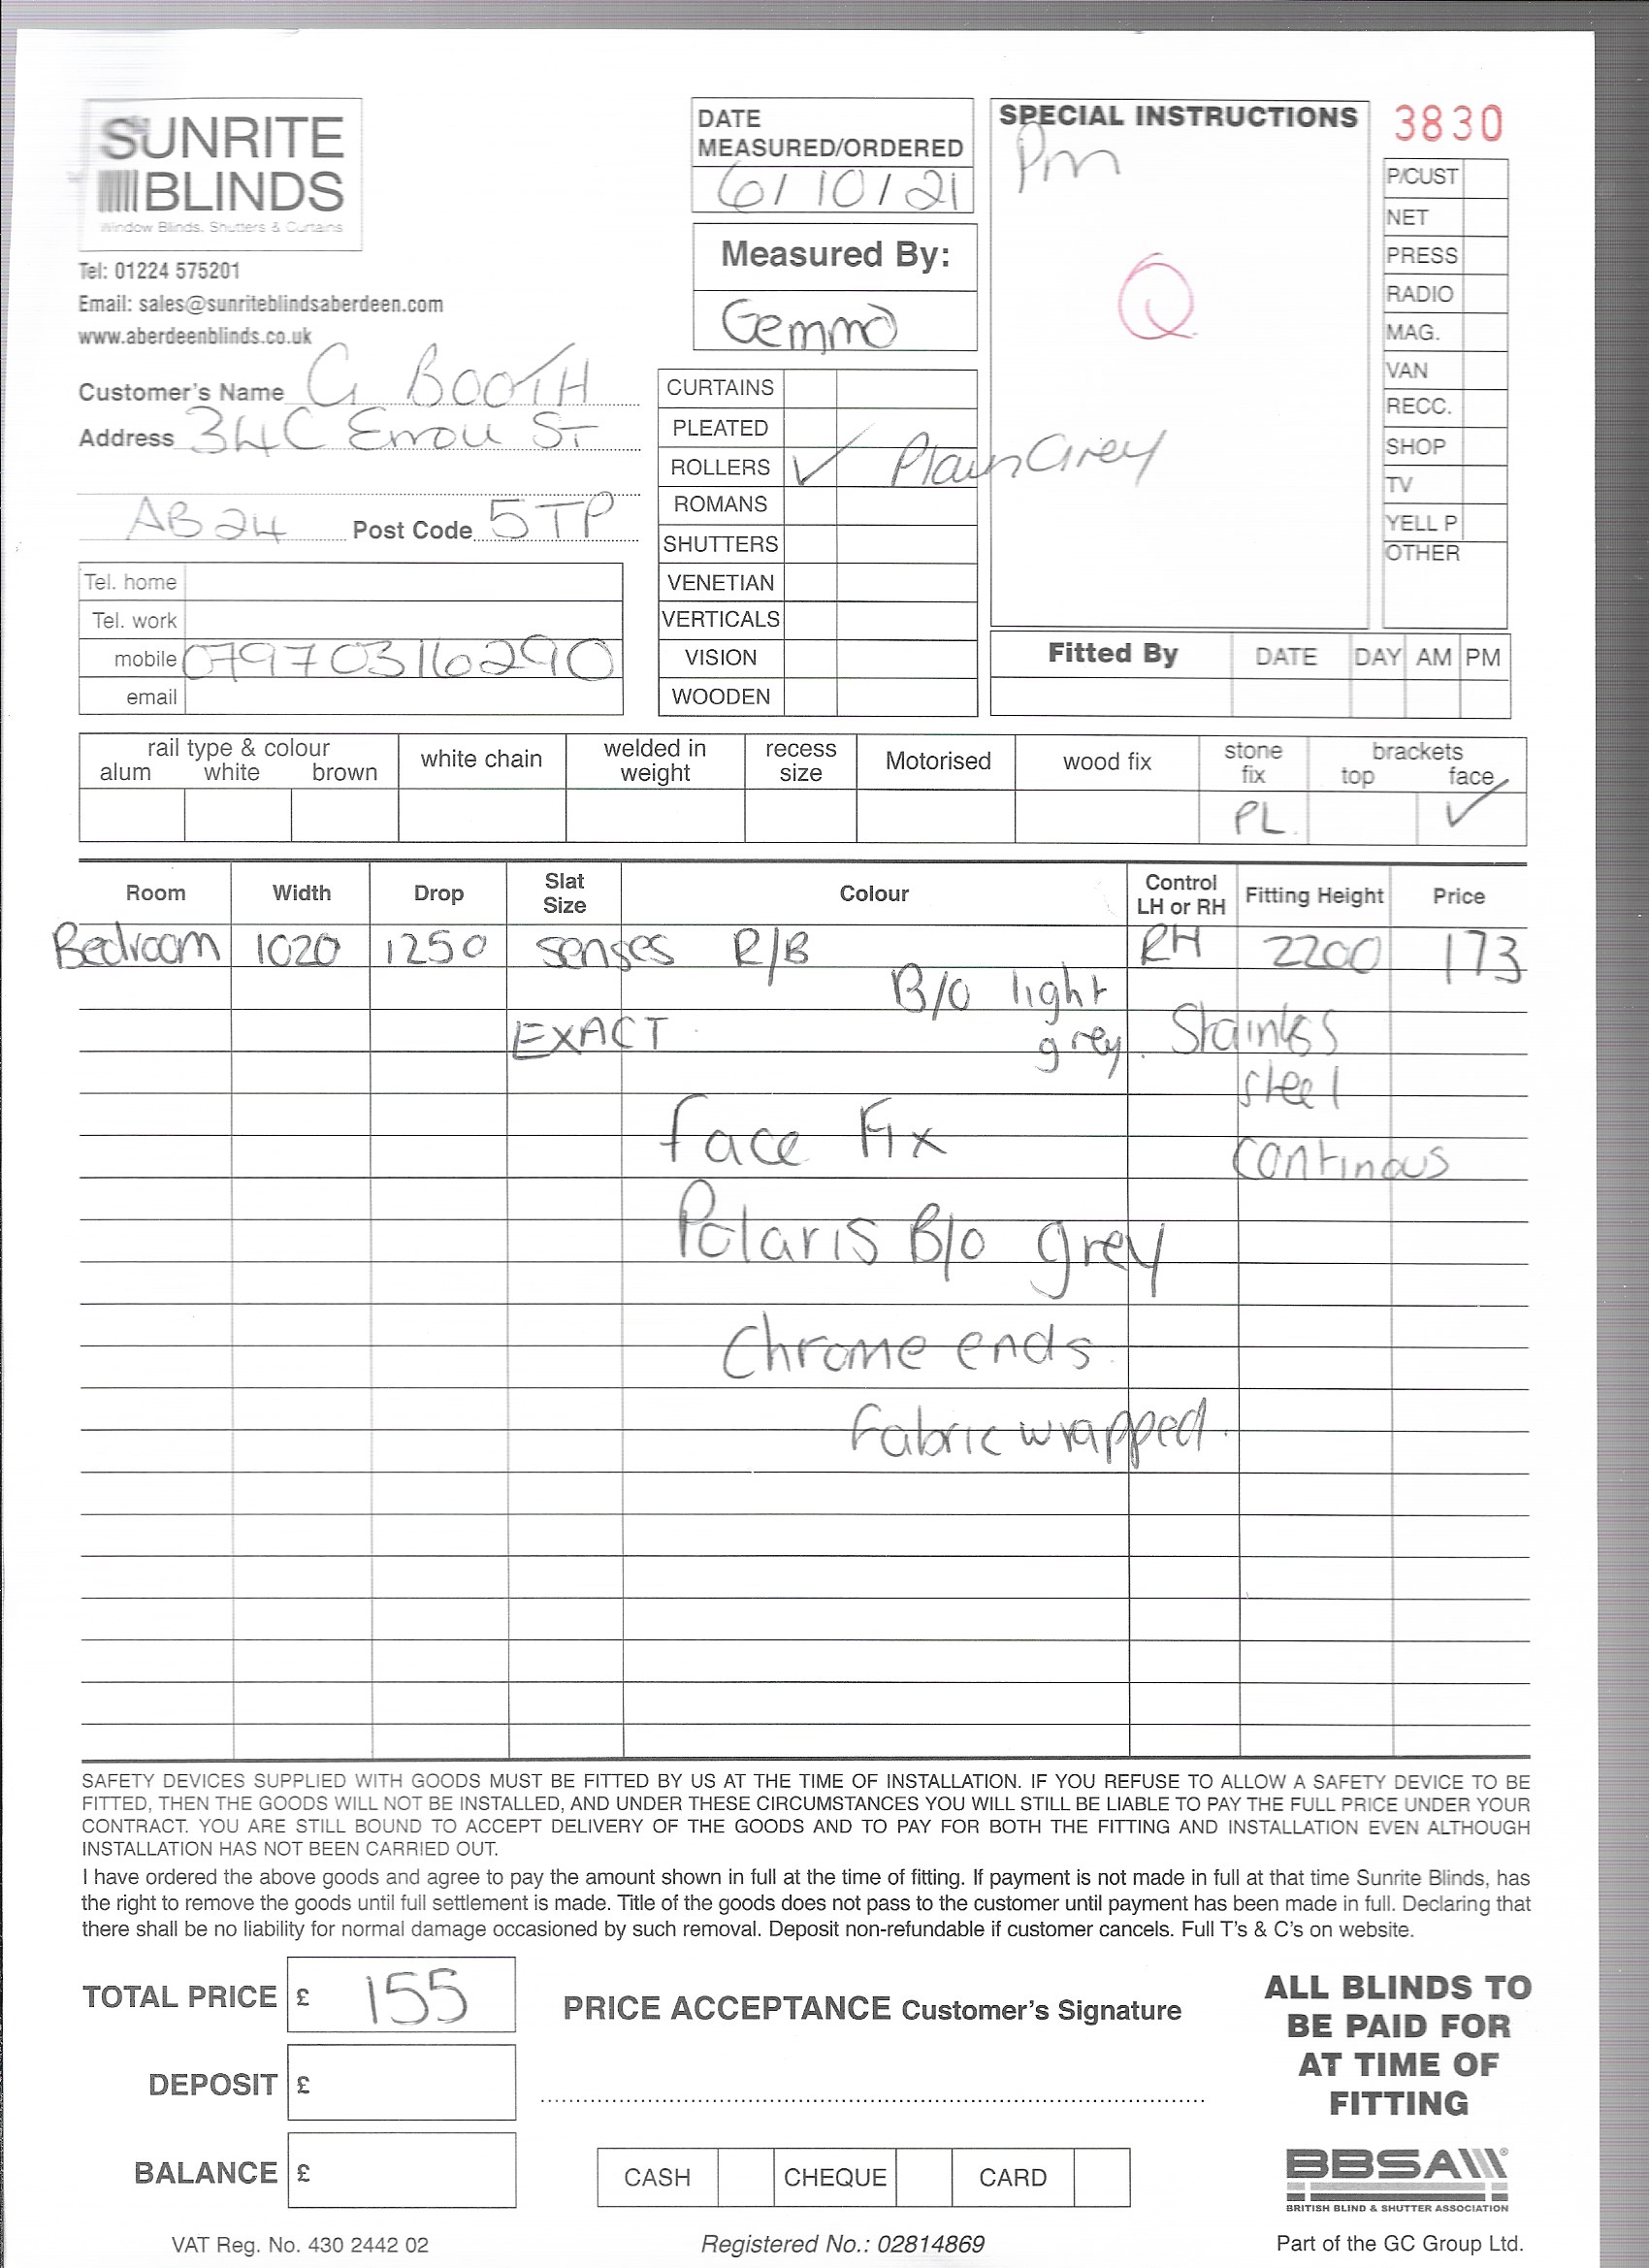 SUNRITE
BLINDS
Window Blinds, Shutters & Curtains
Tel: 01224 575201
Email: sales@sunriteblindsaberdeen.com
www.aberdeenblinds.co.uk
Customer's Name G BOOTH
Address 34C Erroll St
AB24 Post Code 5TP
Tel. home
Tel. work
mobile 07970316290
email
DATE
MEASURED/ORDERED
6/10/21
Measured By:
Gemma
CURTAINS
PLEATED
ROLLERS ✓ Plain Grey
ROMANS
SHUTTERS
VENETIAN
VERTICALS
VISION
WOODEN
SPECIAL INSTRUCTIONS
Pm
Q
3830
P/CUST
NET
PRESS
RADIO
MAG.
VAN
RECC.
SHOP
TV
YELL P
OTHER
Fitted By DATE DAY AM PM
rail type & colour
alum white brown
white chain
welded in
weight
recess
size
Motorised
wood fix
stone
fix
PL.
brackets
top face
✓
Room Width Drop Slat Size Colour Control LH or RH Fitting Height Price
Bedroom 1020 1250 senses R/B RH 2200 173
B/O light
grey.
EXACT
Stainlss
steel
continous
face Fix
Polaris B/o grey
Chrome ends
Fabric wrapped.
SAFETY DEVICES SUPPLIED WITH GOODS MUST BE FITTED BY US AT THE TIME OF INSTALLATION. IF YOU REFUSE TO ALLOW A SAFETY DEVICE TO BE
FITTED, THEN THE GOODS WILL NOT BE INSTALLED, AND UNDER THESE CIRCUMSTANCES YOU WILL STILL BE LIABLE TO PAY THE FULL PRICE UNDER YOUR
CONTRACT. YOU ARE STILL BOUND TO ACCEPT DELIVERY OF THE GOODS AND TO PAY FOR BOTH THE FITTING AND INSTALLATION EVEN ALTHOUGH
INSTALLATION HAS NOT BEEN CARRIED OUT.
I have ordered the above goods and agree to pay the amount shown in full at the time of fitting. If payment is not made in full at that time Sunrite Blinds, has
the right to remove the goods until full settlement is made. Title of the goods does not pass to the customer until payment has been made in full. Declaring that
there shall be no liability for normal damage occasioned by such removal. Deposit non-refundable if customer cancels. Full T's & C's on website.
TOTAL PRICE £ 155
DEPOSIT £
BALANCE £
PRICE ACCEPTANCE Customer's Signature
CASH CHEQUE CARD
ALL BLINDS TO
BE PAID FOR
AT TIME OF
FITTING
BBSA
BRITISH BLIND & SHUTTER ASSOCIATION
VAT Reg. No. 430 2442 02
Registered No.: 02814869
Part of the GC Group Ltd.